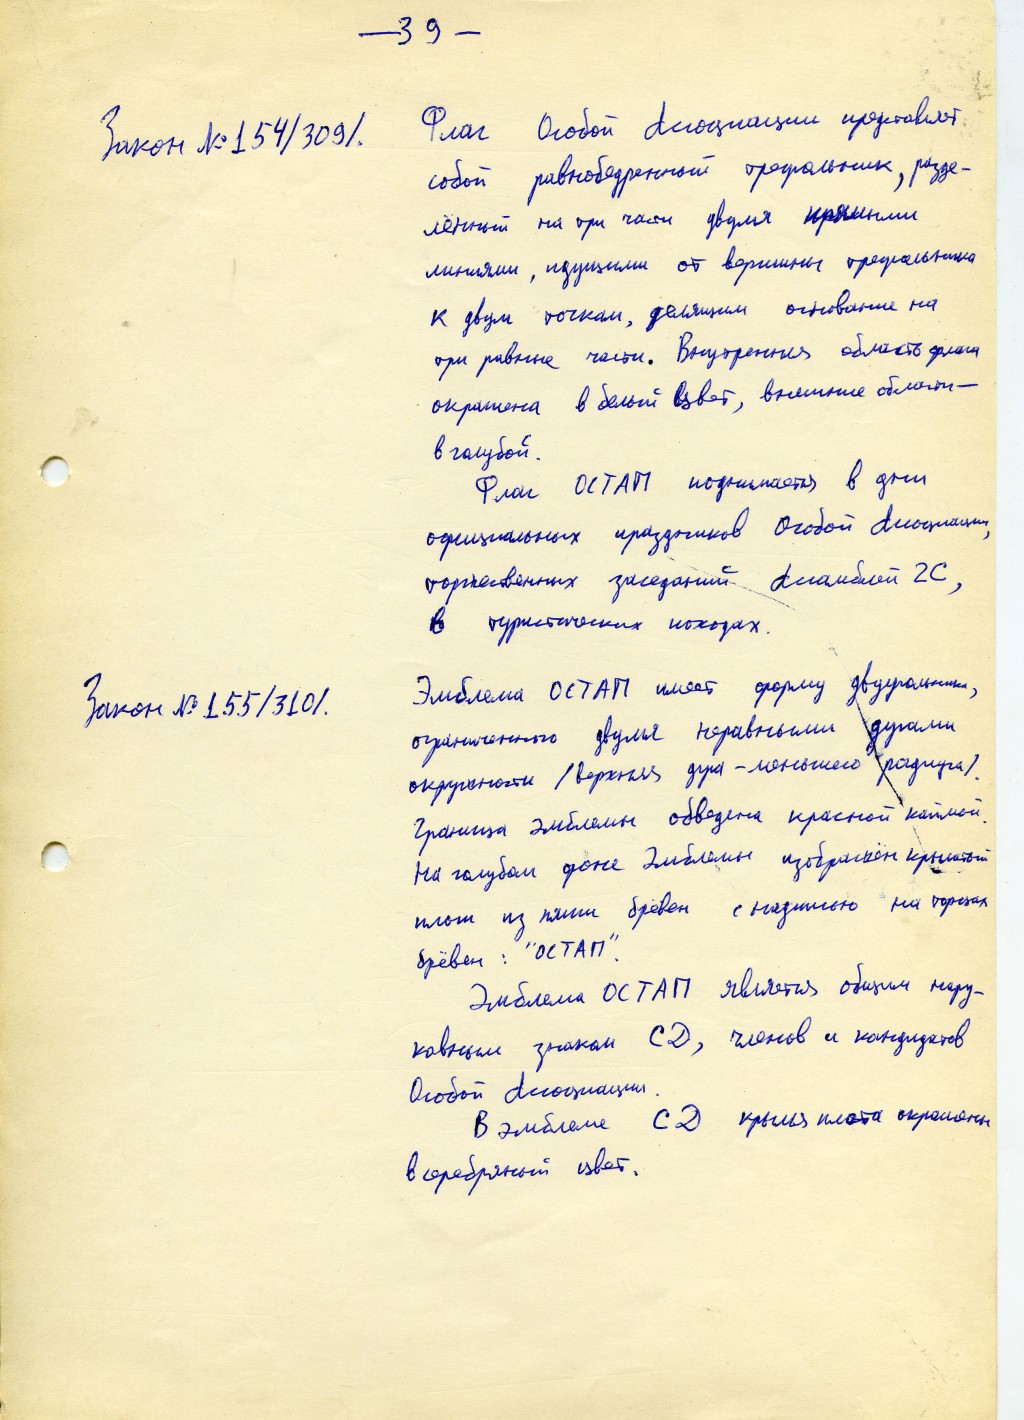 —39—
Закон №154/309/.
Флаг Особой Ассоциации представляет
собой равнобедренный треугольник, разде-
лённый на три части двумя прямыми
линиями, идущими от вершины треугольника
к двум точкам, делящим основание на
три равные части. Внутренняя область флага
окрашена в белый цвет, внешние области—
в голубой.
Флаг ОСТАП поднимается в дни
официальных праздников Особой Ассоциации,
торжественных заседаний Ассамблей 2С,
в туристических походах.
Закон №155/310/.
Эмблема ОСТАП имеет форму двуугольника,
ограниченного двумя неравными дугами
окружности /верхняя дуга - меньшего радиуса/.
Граница эмблемы обведена красной каймой.
На голубом фоне Эмблемы изображён крылатый
плот из пяти брёвен с надписью на торцах
брёвен: "ОСТАП".
Эмблема ОСТАП является общим нару-
жным знаком СД, членов и кандидатов
Особой Ассоциации.
В эмблеме СД крылья плота окрашены
в серебряный цвет.